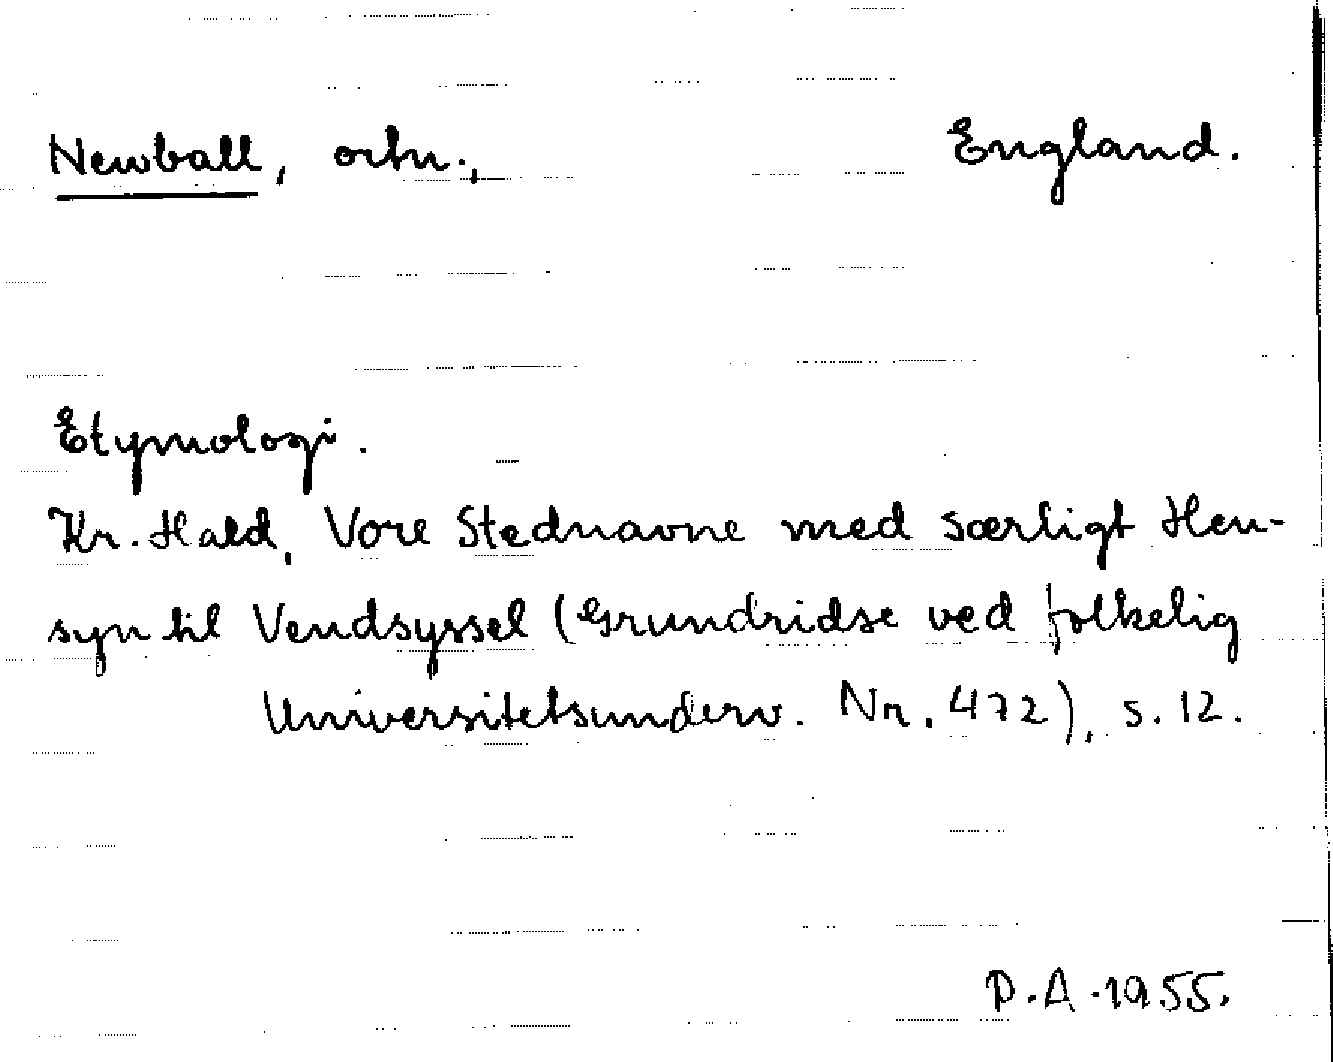 Newball, ortn., England.
Etymologi.
Kr. Hald, Vore Stednavne med særligt Hen-
syn til Vendsyssel (Grundridse ved folkelig
Universitetsunderv. Nr. 472), s. 12.
D.A. 1955.